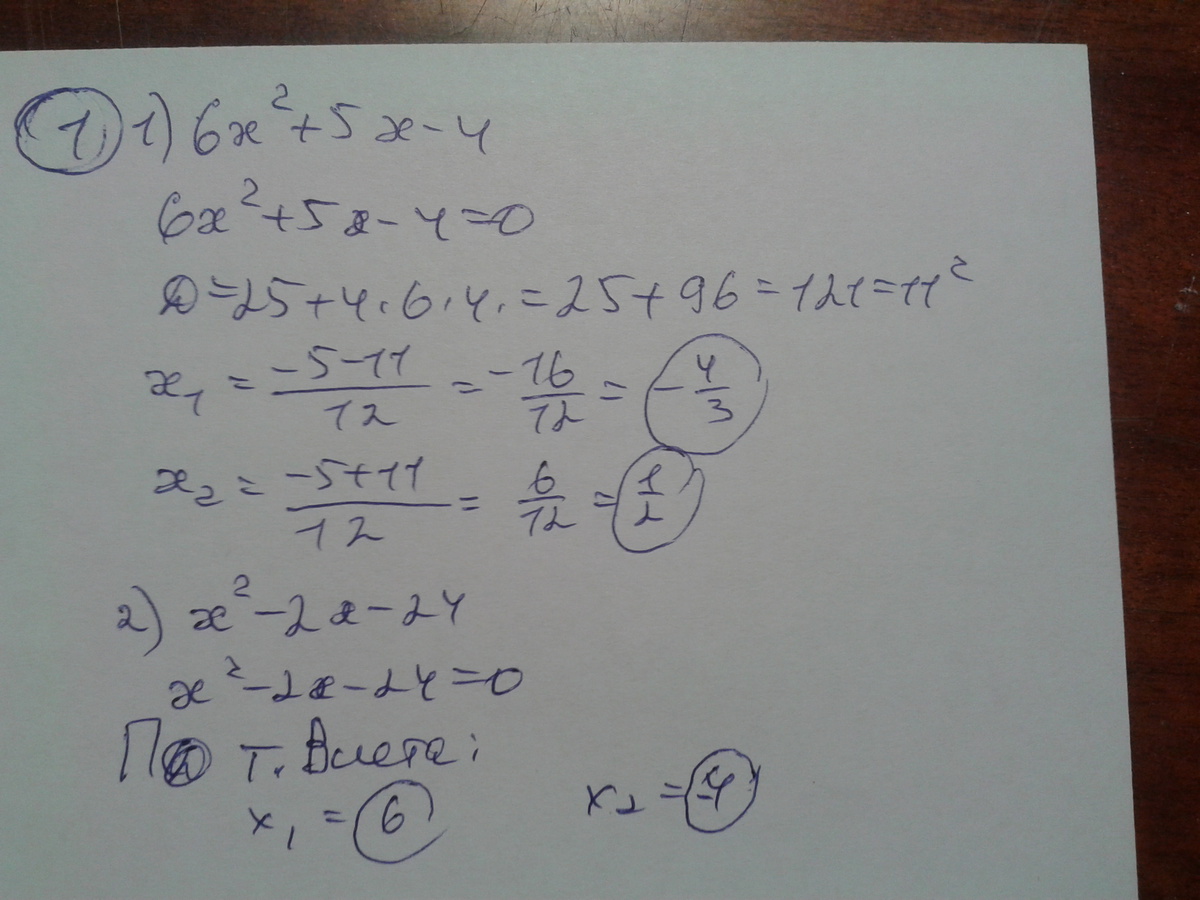 1 1) 6x² + 5x - 4
6x² + 5x - 4 = 0
D = 25 + 4 · 6 · 4 · = 25 + 96 = 121 = 11²
x₁ = (-5-11)/12 = -16/12 = -4/3
x₂ = (-5+11)/12 = 6/12 = 1/2
2) x² - 2x - 24
x² - 2x - 24 = 0
По т. Виета:
x₁ = 6 x₂ = -4